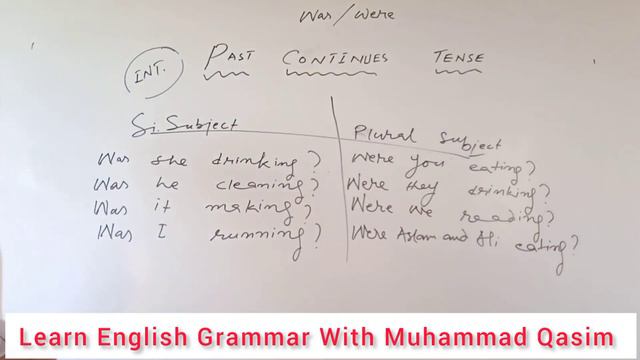 Was/Were
INT. PAST CONTINUES TENSE
Si. Subject
Was she drinking?
Was he cleaning?
Was it making?
Was I running?
Plural Subject
Were you eating?
Were they drinking?
Were we reading?
Were Aslam and Ali eating?
Learn English Grammar With Muhammad Qasim